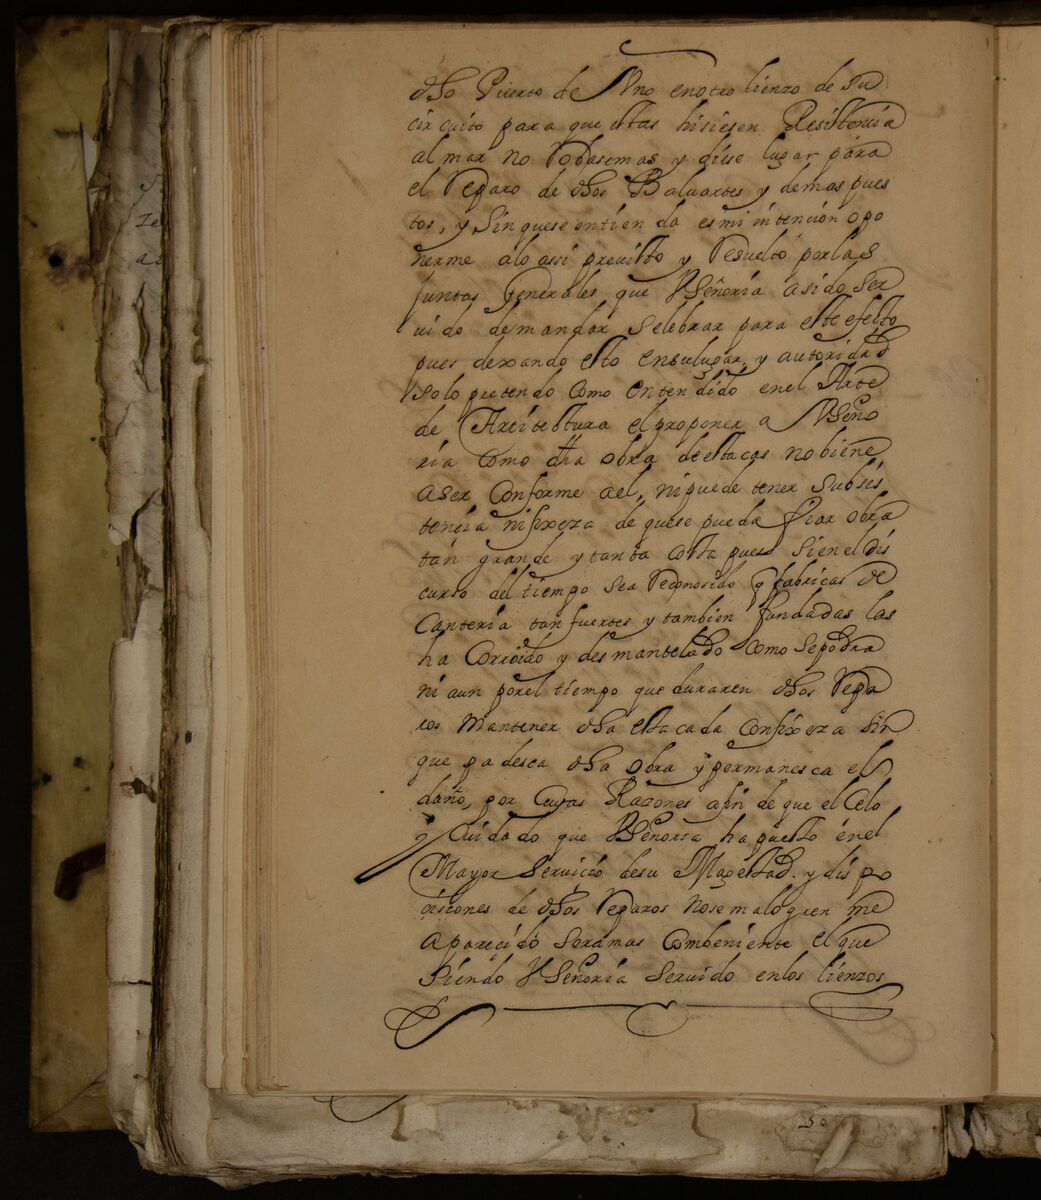 dho Puerto de Vno enotro lienzo de su
circuito para que estas hisiesen Resistencia
al mar no Vobasemas y diese lugar para
el Reparo de dhos Baluartes y demas pues
tos, y Sin quese entienda es mi intención opo
nerme alo assi previsto y Resuelto por las
Juntas Generales que Vseñoria ásido ser
uido demandar selebrar para este efecto
pues dexando esto ensulugar, y autoridad
solo pretendo como entendido enel Arte
de Arcitectura el proponer a Vseño
ria como dha obra de estacas nobiene
aser conforme ael, ni puede tener subsis
tencia nifixeza de quese pueda fiar obra
tan grande y tanta costa pues sienel dis
curso del tiempo sea Reconosido q fabricas de
Canteria tan fuertes y tambien fundadas las
ha Corroido y desmantelado Como sepodra
ni aun porel tiempo que duraren dhos Repa
ros mantener dha estacada confixeza sin
que padesca dha obra y permanesca el
daño, por Cuyas Razones afin de que el Celo
y Cuidado que Vseñoria ha puesto en el
Mayor Servicio desu Magestad. y dispo
ciciones de dhos Reparos nosemalogren me
aparecido seramas combeniente el que
siendo Vseñoria seruido enlos lienzos